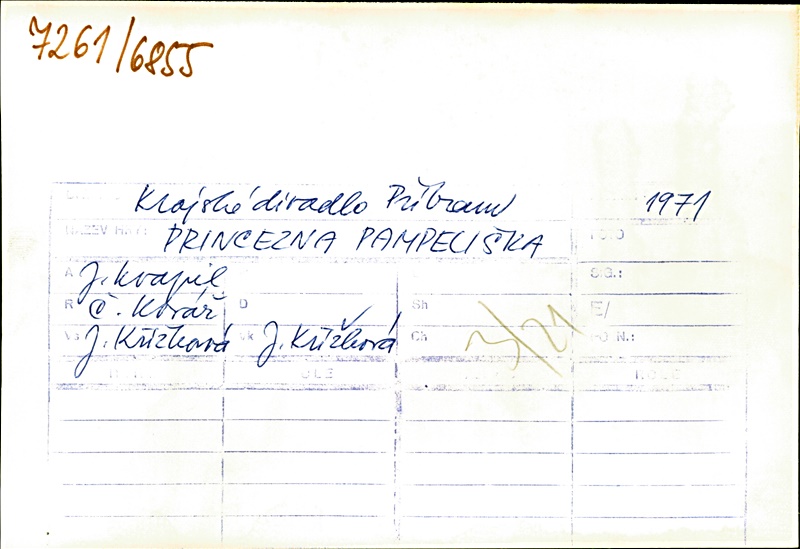 7261/6855
Krajské divadlo Příbram 1971
NÁZEV HRY: PRINCEZNA PAMPELIŠKA FOTO
A J. Kvapil SIG.:
R Č. Kovář D Sh E/
Vs J. Křížková Vk J. Křížková Ch 3/21 PO N.:
ROLE ROLE